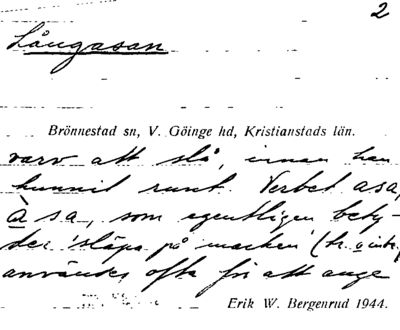 2
Långasan
Brönnestad sn, V. Göinge hd, Kristianstads län.
varv att slå, innan han
hunnit runt. Verbet asa,
à sa, som egentligen bety-
der 'släpa på marken' (tr. o intr.)
användes ofta för att ange
Erik W. Bergenrud 1944.